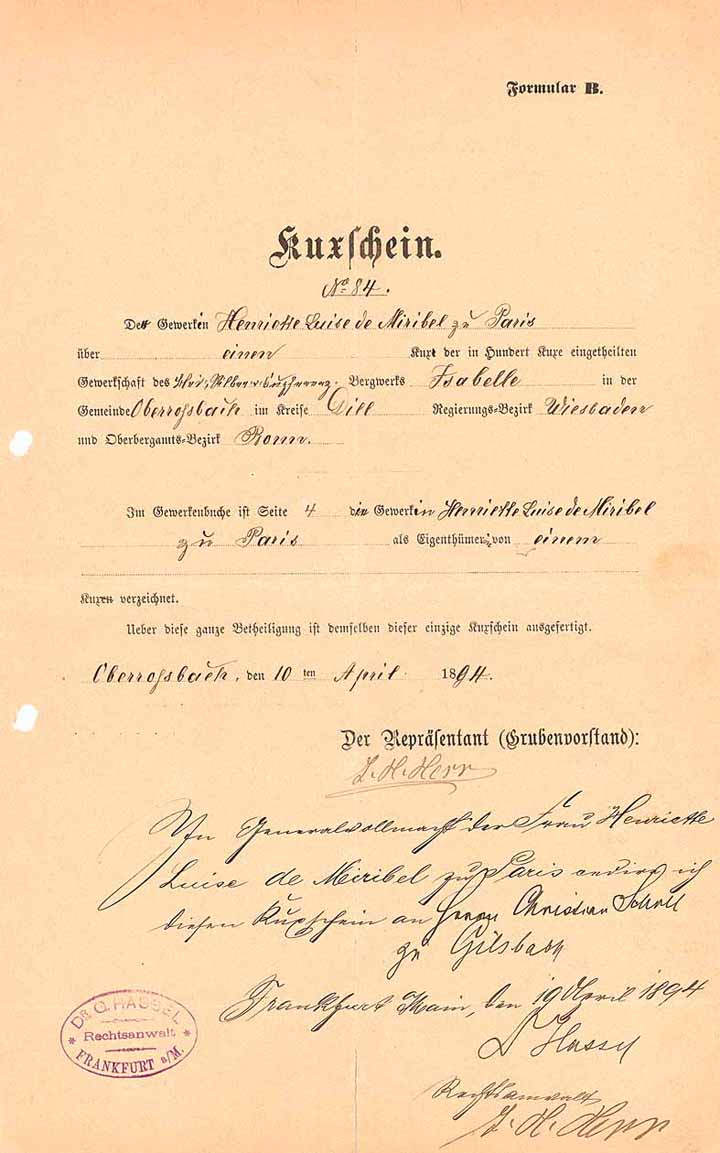 Formular B.
Kuxschein.
No 84.
Der Gewerkin Henriette Luise de Miribel zu Paris
über einen Kuxe der in Hundert Kuxe eingetheilten
Gewerkschaft des Blei, Silber u. Kupfererz. Bergwerks Isabelle in der
Gemeinde Oberrossbach im Kreise Dill Regierungs-Bezirk Wiesbaden
und Oberbergamts-Bezirk Bonn.
Im Gewerkenbuche ist Seite 4 die Gewerkin Henriette Luise de Miribel
zu Paris als Eigenthümerin von einem
Kuxen verzeichnet.
Ueber diese ganze Betheiligung ist demselben dieser einzige Kuxschein ausgefertigt.
Oberrossbach, den 10 ten April 1894.
Der Repräsentant (Grubenvorstand):
J. H. Herr
In Generalvollmacht der Frau Henriette
Luise de Miribel zu Paris cedire ich
diesen Kuxschein an Herrn Christian Scholl
zu Gilsbach
Frankfurt Main, den 19 April 1894
Dr Hassel
Rechtsanwalt
J. H. Herr
DR. O. HASSEL
Rechtsanwalt
FRANKFURT a/M.